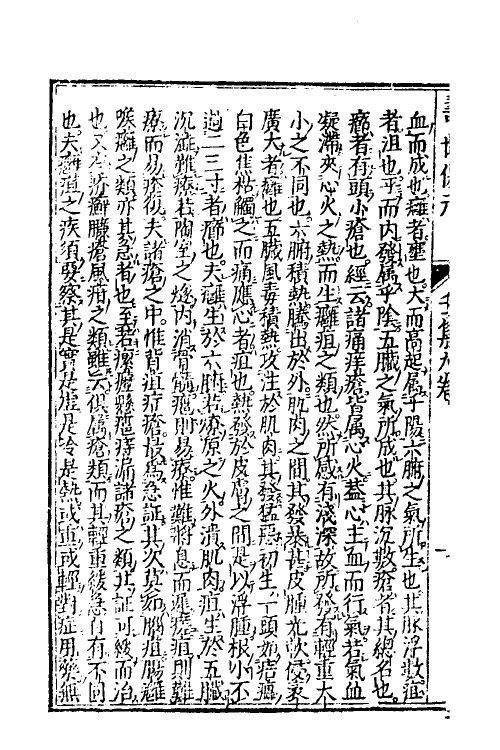 血而成也癰者壅也大而高起属乎陽六腑之氣所生也其脉浮数疽
者沮也平而内發属乎陰五臟之氣所成也其脉沉数瘡者其總名也
癤者有頭小瘡也經云諸痛痒瘡皆属心火蓋心主血而行氣若氣血
凝滞夾心火之熱而生癰疽之類也然所感有淺深故所發有輕重大
小之不同也六腑積熱騰出於外肌肉之間其發暴甚皮腫光軟侵衺
廣大者癰也五臟風毒積熱攻注於肌肉其發猛惡初生一頭如㾦癗
白色焦枯觸之而痛應心者疽也熱發於皮膚之間是以浮腫根小不
過二三寸者癤也夫癰生於六腑若燎原之火外潰肌肉疽生於五臟
沉澁難療若陶室之燧内消骨髓癰則易療惟難將息而遲療疽則難
療而易療復夫諸瘡之中惟背疽疔瘡最爲急証其次莫若腦疽腸癰
喉癰之類亦其急者也至若瘰癧懸癰痔漏諸瘡之類其証可緩而治
也又有疥癬臁瘡風疳之類雖云俱属瘡類而其輕重緩急自有不同
也夫癰疽之疾須要察其是實是虛是冷是熱或重或輕對症用藥無